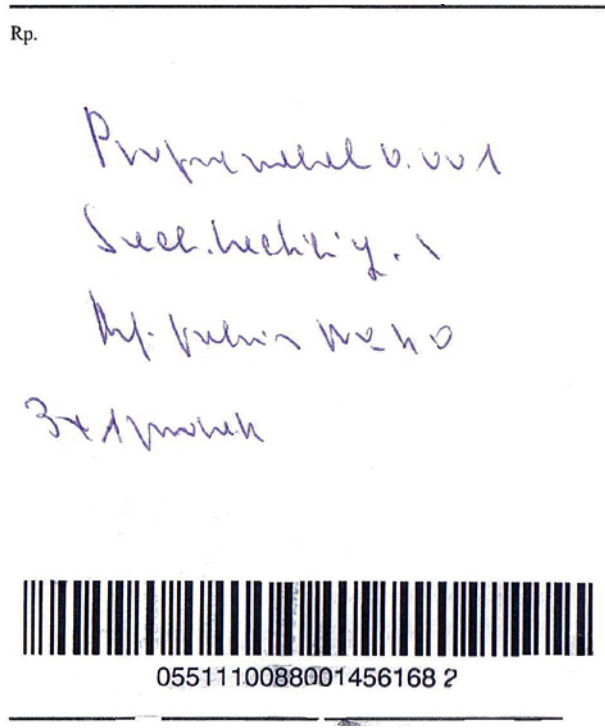 Rp.
Propranolol 0.001
Sacch. lact. q. s.
M.f. pulvis No
3x1 proszek
0551110088001456168 2